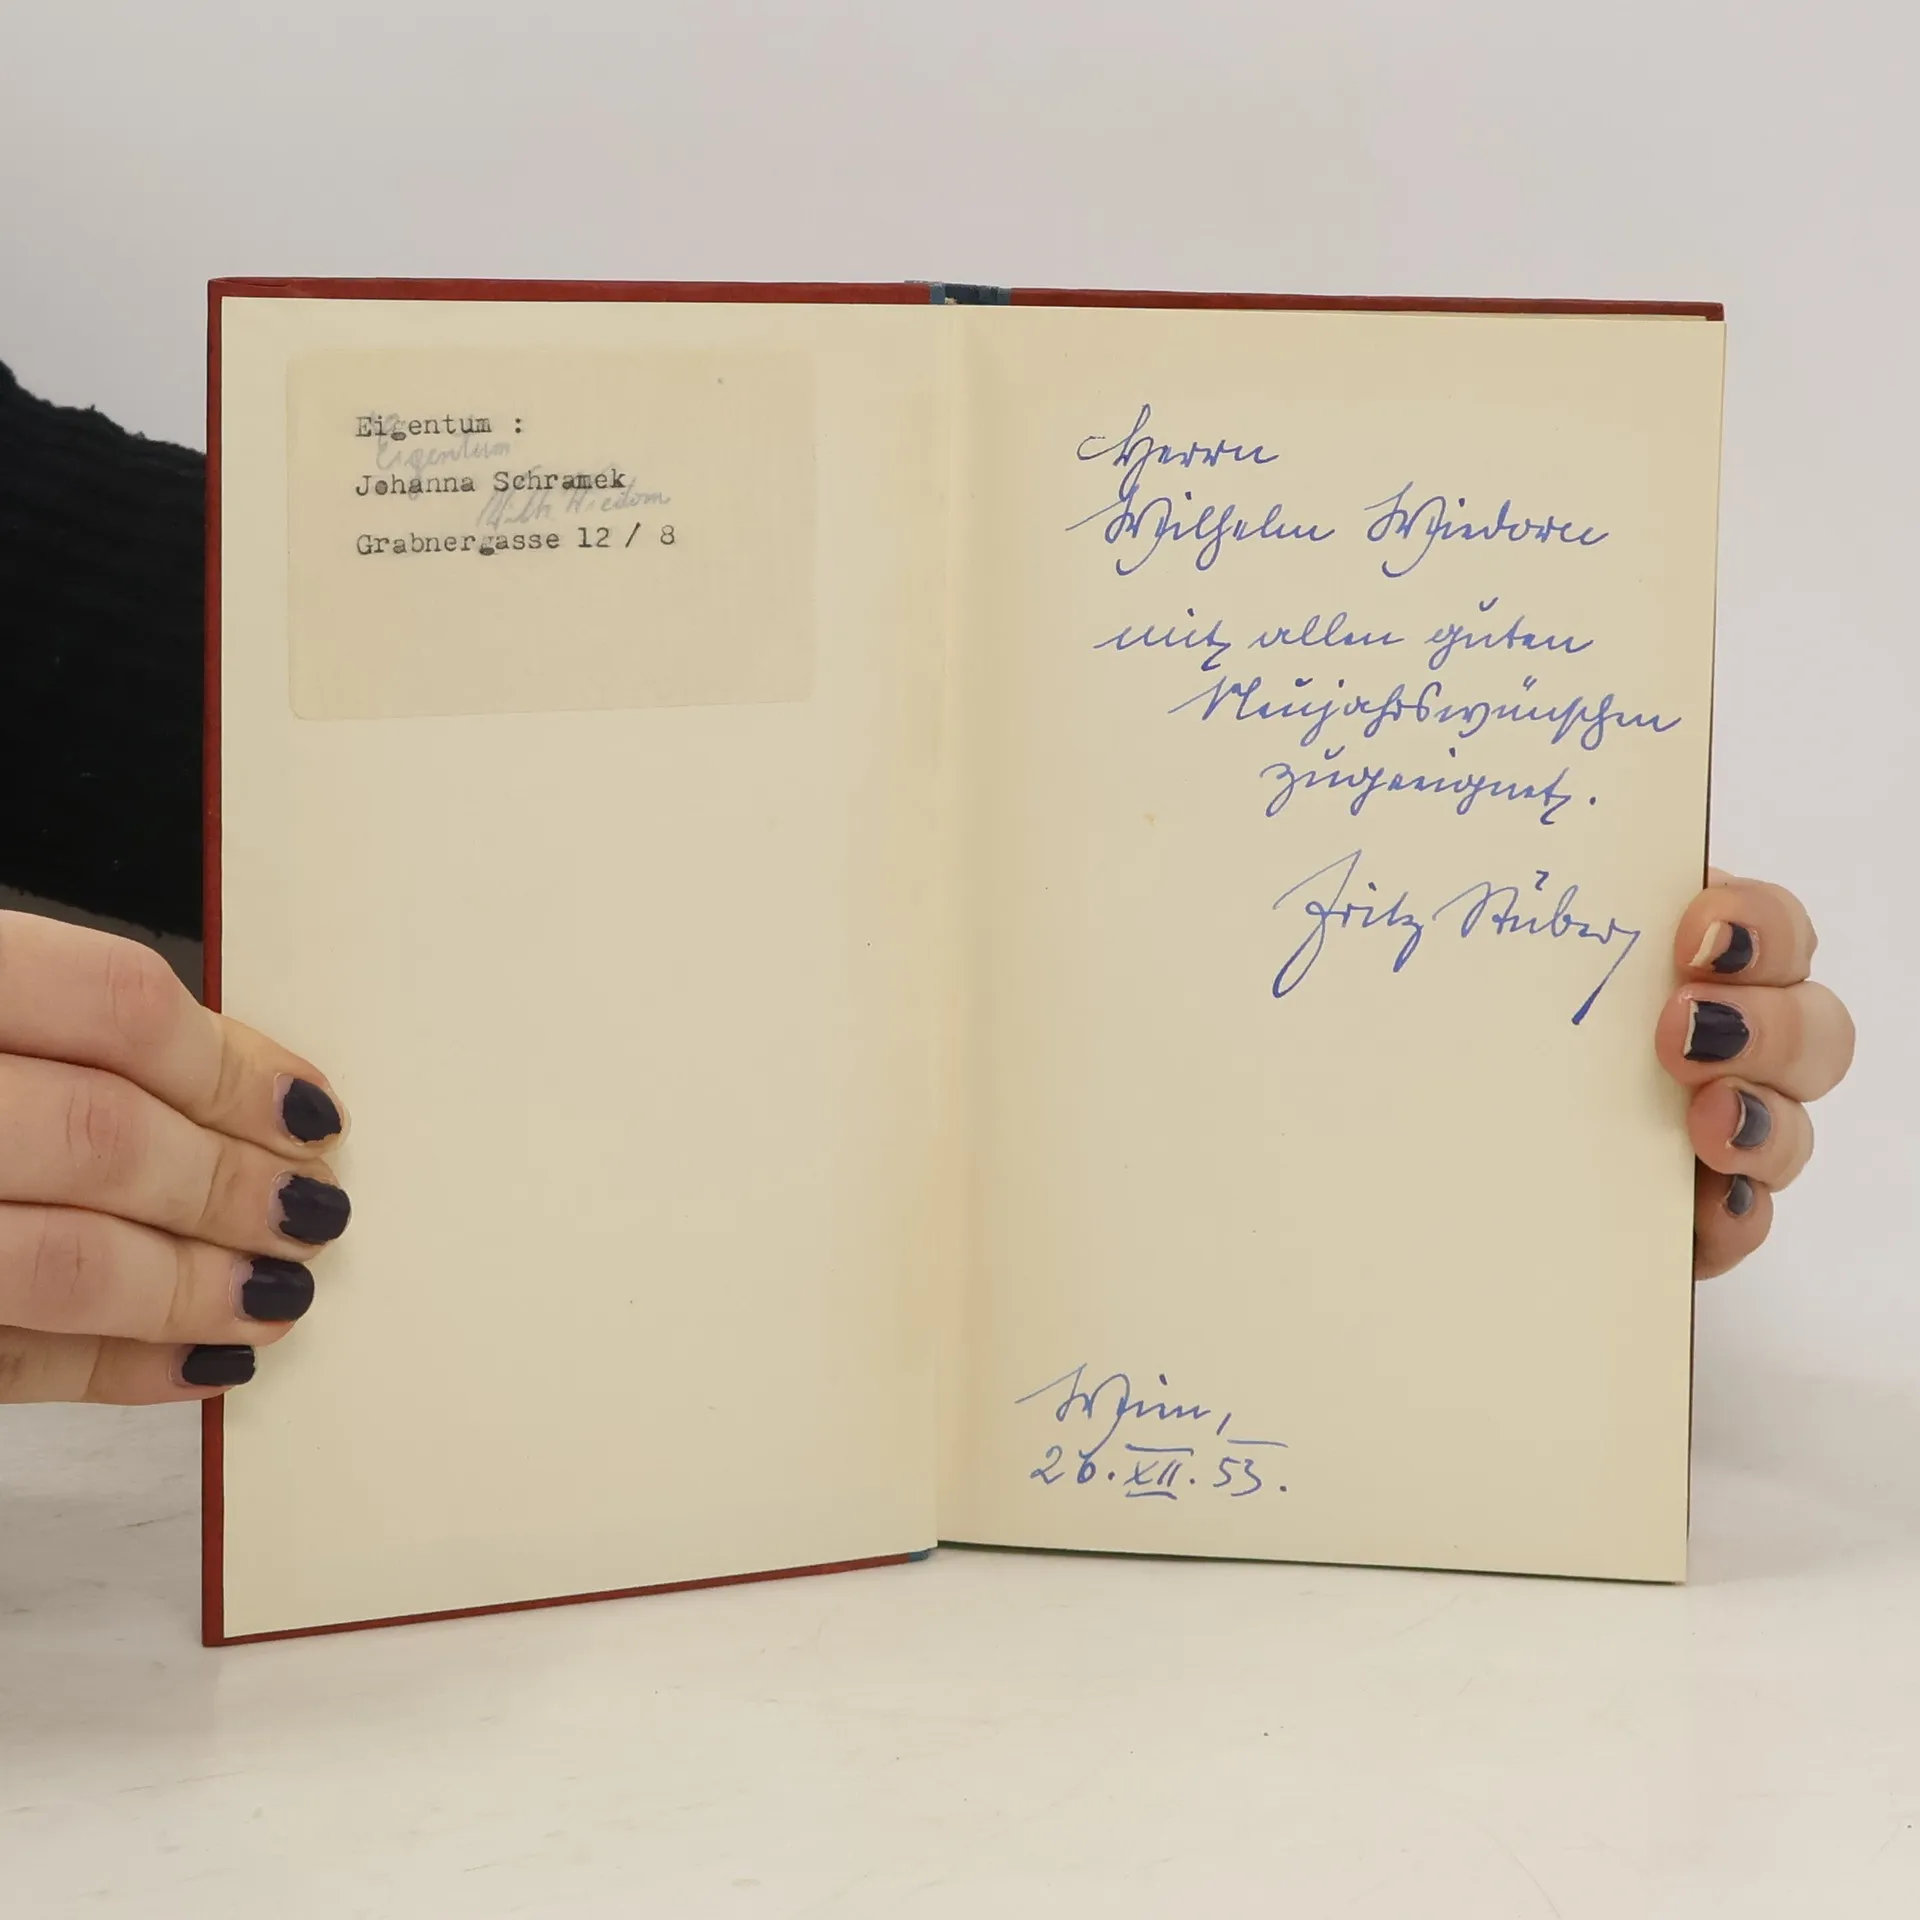 Eigentum :
Eigentum
Johanna Schramek
Wilh. Wiedorn
Grabnergasse 12 / 8
Herrn
Wilhelm Wiedorn
mit allen guten
Neujahrswünschen
zugeeignet.
Fritz Stüber
Wien,
26.XII.53.